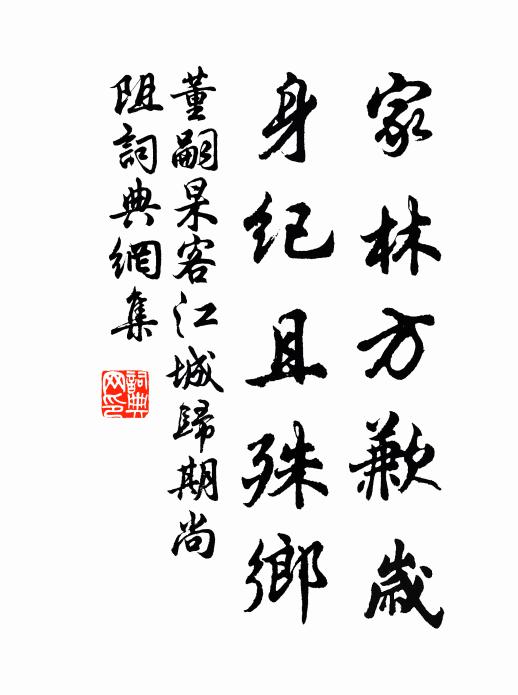 家林方歉歲
身紀且殊鄉
董嗣杲客江城歸期尚
阻詞典網集
詞典网印